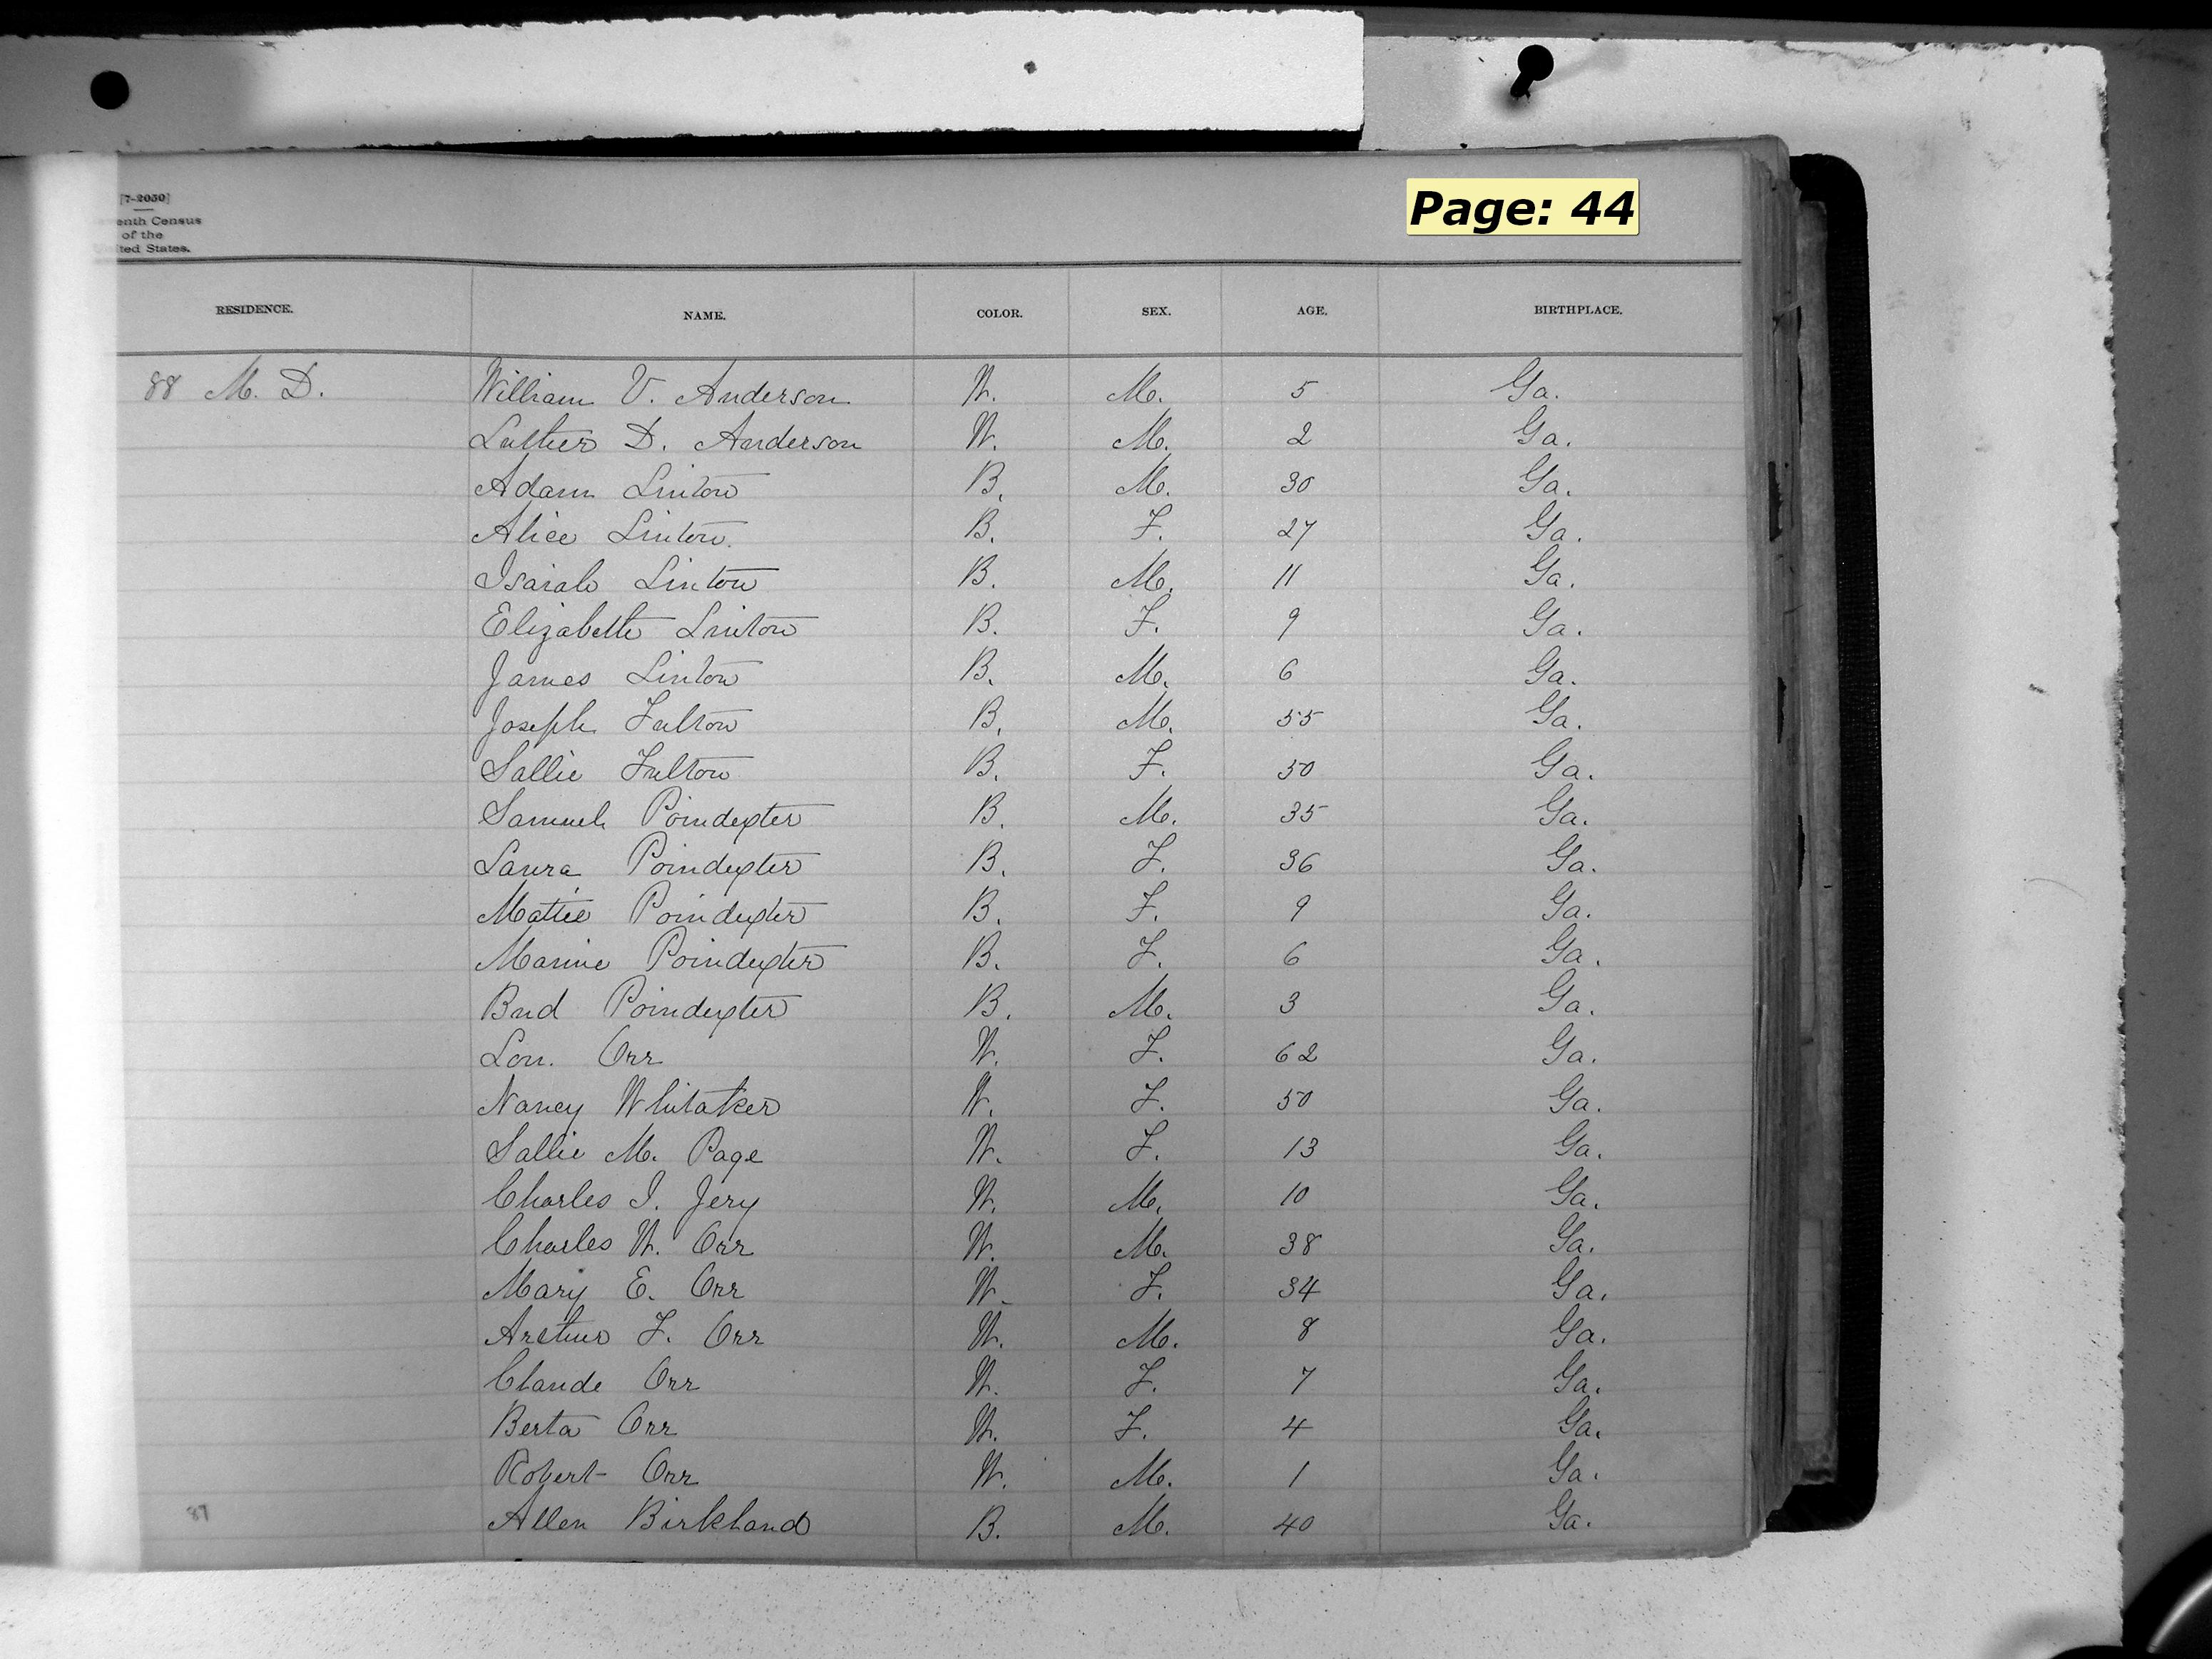 Page: 44
[7-2050]
enth Census
of the
ted States.
RESIDENCE. NAME. COLOR. SEX. AGE. BIRTHPLACE.
88 M. D. William V. Anderson W. M. 5 Ga.
Luther D. Anderson W. M. 2 Ga.
Adam Linton B. M. 30 Ga.
Alice Linton B. F. 27 Ga.
Isaiah Linton B. M. 11 Ga.
Elizabeth Linton B. F. 9 Ga.
James Linton B. M. 6 Ga.
Joseph Fulton B. M. 55 Ga.
Sallie Fulton B. F. 50 Ga.
Samuel Poindexter B. M. 35 Ga.
Laura Poindexter B. F. 36 Ga.
Mattie Poindexter B. F. 9 Ga.
Mannie Poindexter B. F. 6 Ga.
Bud Poindexter B. M. 3 Ga.
Lou. Orr W. F. 62 Ga.
Nancy Whitaker W. F. 50 Ga.
Sallie M. Page W. F. 13 Ga.
Charles I. Jery W. M. 10 Ga.
Charles W. Orr W. M. 38 Ga.
Mary E. Orr W. F. 34 Ga.
Arthur F. Orr W. M. 8 Ga.
Claude Orr W. F. 7 Ga.
Berta Orr W. F. 4 Ga.
Robert Orr W. M. 1 Ga.
87 Allen Birkhand B. M. 40 Ga.